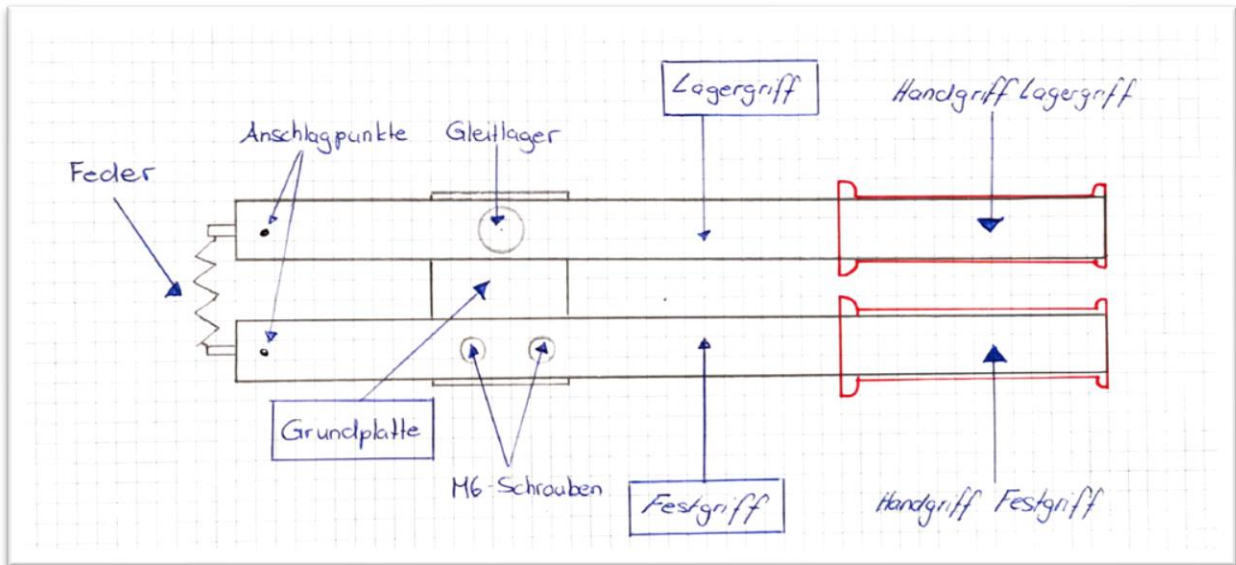 Lagergriff
Handgriff Lagergriff
Anschlagpunkte
Gleitlager
Feder
Grundplatte
M6-Schrauben
Festgriff
Handgriff Festgriff